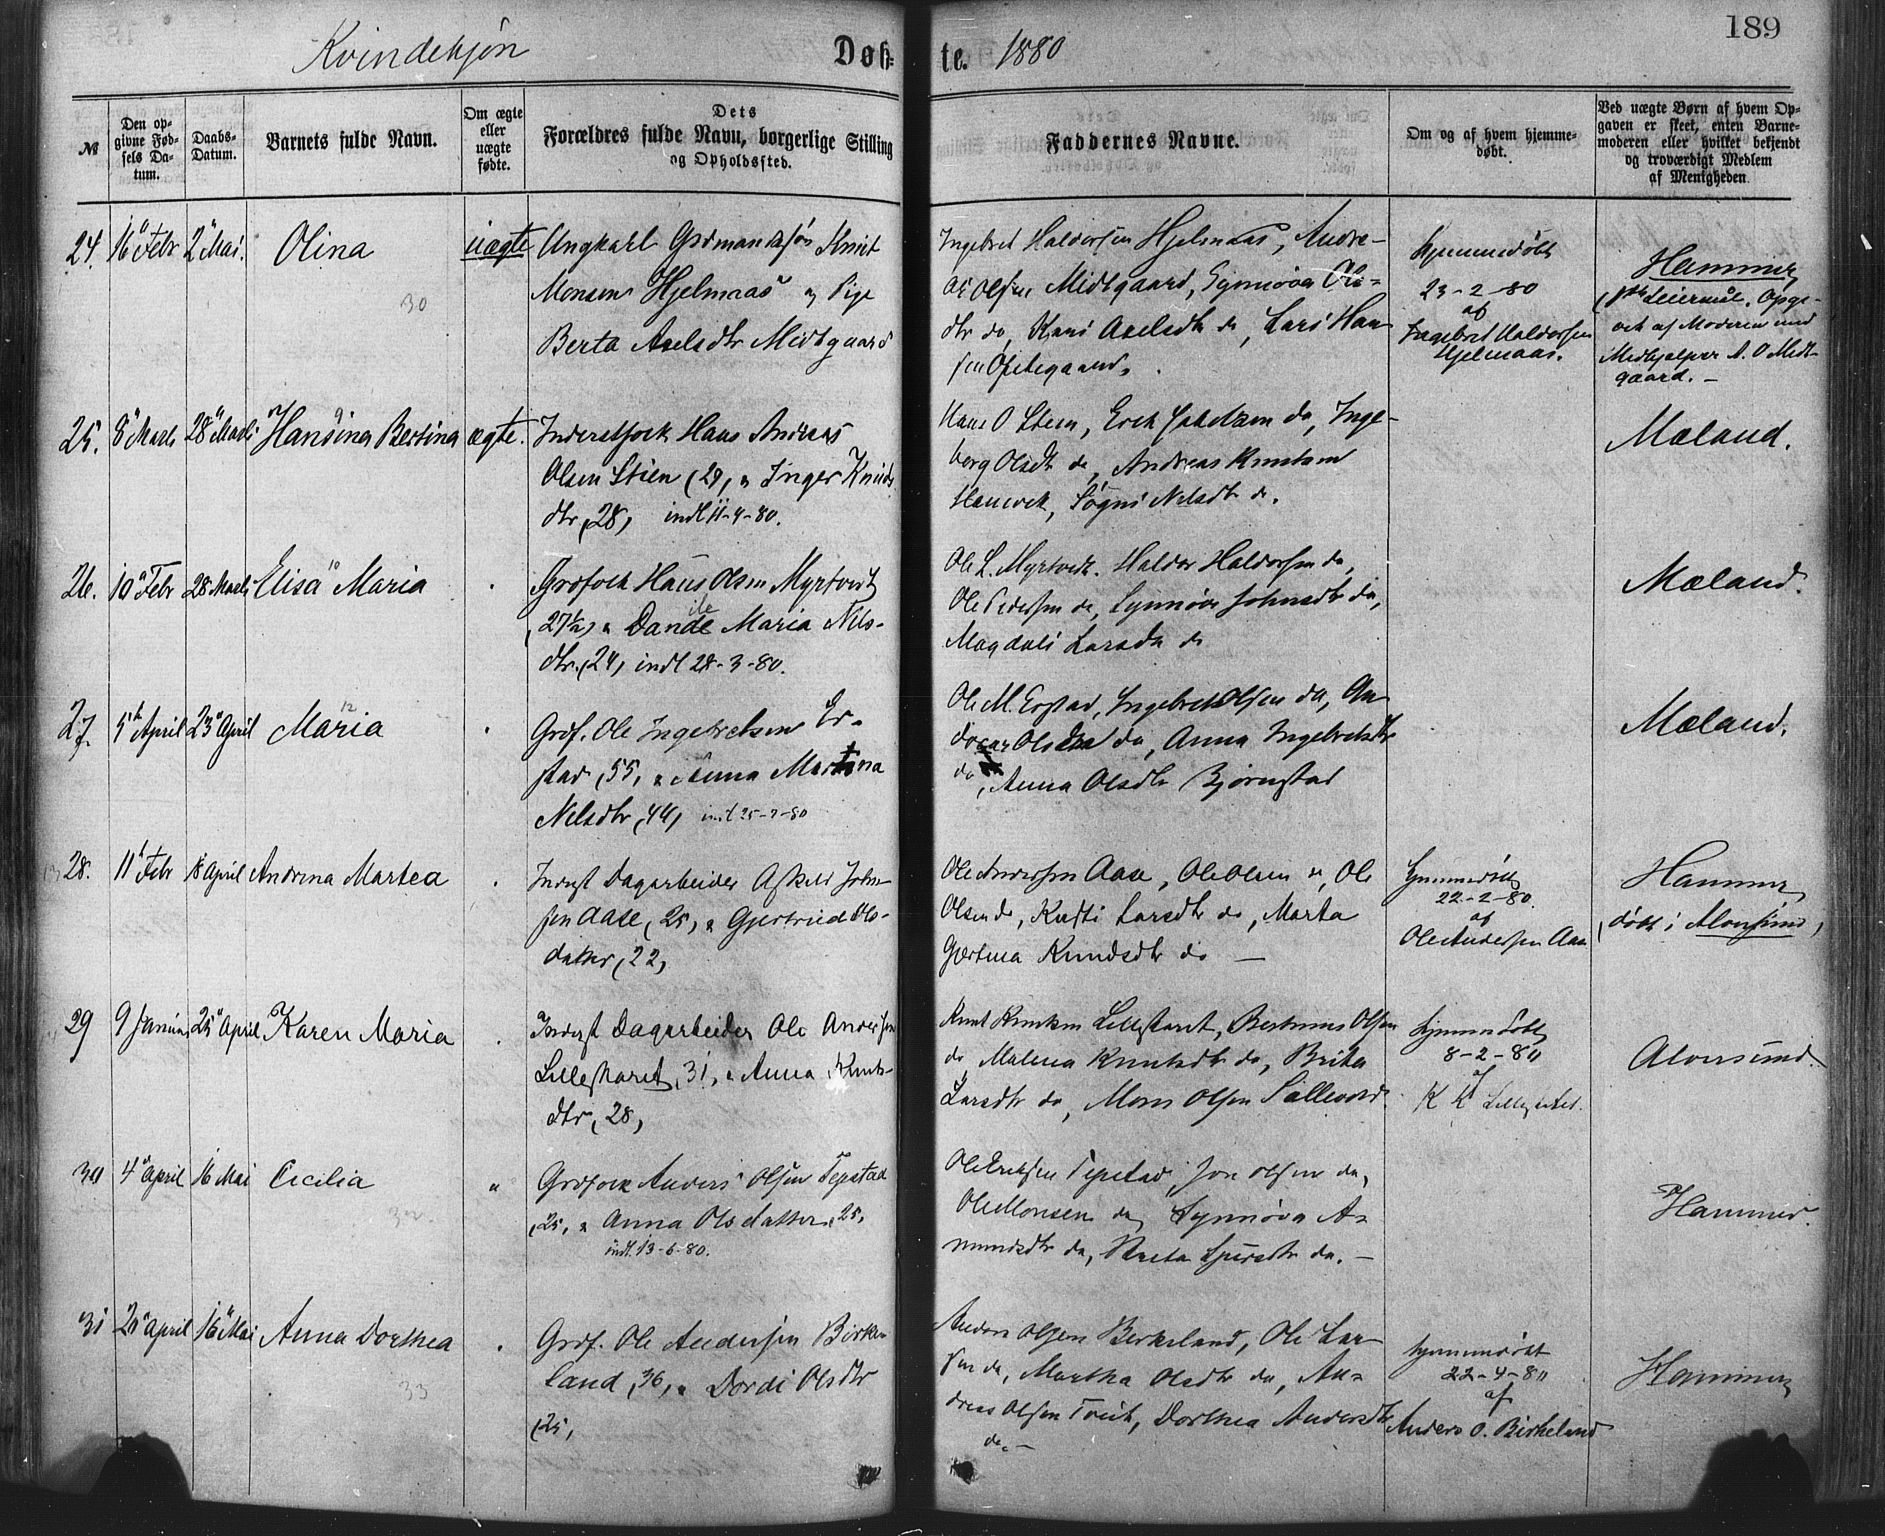 189
Kvindekjøn
Døb-
te. 1880
№
Den op-
givne Fød-
sels Da-
tum.
Daabs-
Datum.
Barnets fulde Navn.
Om ægte
eller
uægte
fødte.
Dets
Forældres fulde Navn, borgerlige Stilling
og Opholdssted.
Faddernes Navne.
Om og af hvem hjemme-
døbt.
Ved uægte Børn af hvem Op-
gaven er skeet, enten Barne-
moderen eller hvilket bekjendt
og troværdigt Medlem
af Menigheden.
24. 16 Febr 2 Mai. Olina uægte
30
Ungkarl Knut
Monsen Hjelmaas og Pige
Berta Axelsdtr Midtgaard
Ingebret Haldorsen Hjelmaas, Andre-
as Olsen Midtgaard, Synnøva Ols-
dtr do, Kari Axelsdtr do, Lars Han-
sen
hjemmedøbt
23-2-80
af
Ingebret Haldorsen
Hjelmaas.
Hammer
Leiermål. Opgi-
vet af Moderen med
Medhjelper A. O Midt-
gaard. —
25. 8 Marts 28 Marts Hansina Bertina ægte.
9
Hans Andreas
Olsen Stien (29, " Inger Knuds
dtr, 28, indl 11-4-80.
Hans O Steen, Erik Jakobsen do, Inge-
borg Olsdtr do, Andreas Knutsen
Nilsdtr do.
Mæland.
26. 10 Febr 28 Marts Elisa Maria
10
Hans Olsen Myrtvedt
(27½, " Dande Maria Nils-
dtr. (24, indl 28-3-80.
Ole L. Myrtvedt. Haldor Haldorsen do,
Ole Pedersen do, Synnøve Johnsdtr do,
Magdali Larsdtr do
Mæland.
27. 5 April 23 April Maria
12
Grdf. Ole Ingebretsen Er-
stad, 55, " Anna Martina
Nelsdtr, 44,
Ole M. Erstad, Ingebret Olsen do, An-
do, Anna Ingebretsdtr
do, Anna Olsdtr Bjørnstad
Mæland.
28. 11 Febr 18 April Andrina Martea
Inderst Dagarbeider Askild John-
sen Aase, (25, " Gjertrud Ols-
datter, (22,
Ole Andersen Aase, Ole Olsen ", Ole
Olsen do, Larsdtr do, Marta
Gjertina Knudsdtr do —
hjemmedøbt
22-2-80.
af
Ole Andersen Aase
Hammer
(døbt i Alversund,
29 9 25 April Karen Maria
Inderst Dagarbeider Ole Andersen
Lilleskaret, 31, " Anna Knuts-
dtr, 28,
Knut Knutsen Lilleskaret, Olsen
do, Malena Knutsdtr do, Brita
Larsdtr do, Mons Olsen
hjemmedøbt
8-2-80
af
K K Lilleskaret.
Alversund.
30 4 April 16 Mai Cecilia "
32
Anders Olsen Tepstad
(25, " Anna Olsdatter, 25,
indl. 13-6-80.
Ole Eriksen Tepstad, Jon Olsen do,
Ole Monsen do, Synnøva A-
mundsdtr do, Sjursdtr do. —
Hammer.
31 21 April 16 Mai Anna Dorthea
33
Grdf. Ole Andersen Birke-
land, 36, " Dordi Olsdtr
(25,
Anders Olsen Birkeland, Ole Lar-
sen do, Martha Olsdtr do, An-
dreas Olsen Tveit, Dorthea Andersdtr
do. —
hjemmedøbt
22-4-80
af
Anders O. Birkeland
Hammer